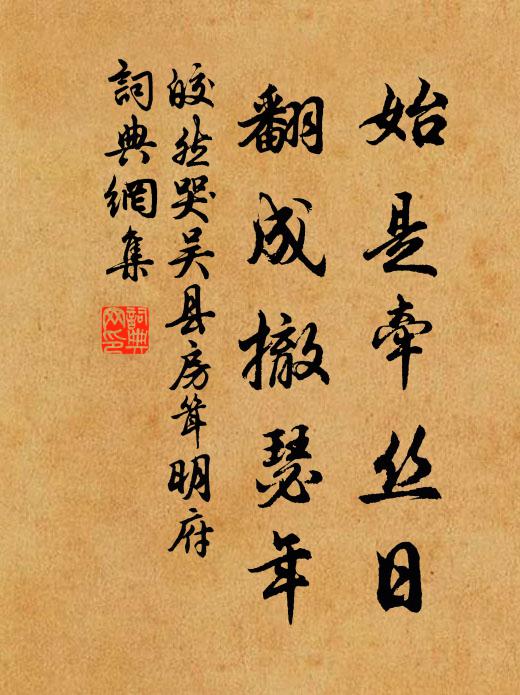 始是牵丝日
翻成撤瑟年
皎然哭吴县房耸明府
詞典網集
詞典網印